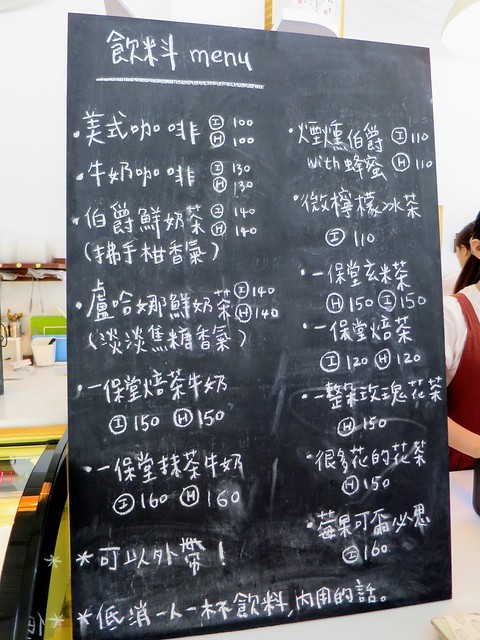 飲料 menu
·美式咖啡 Ⓘ 100
Ⓗ 100
·牛奶咖啡 Ⓘ 130
Ⓗ 130
·伯爵鮮奶茶 Ⓘ 140
Ⓗ 140
(拂手柑香氣)
·盧哈娜鮮奶茶 Ⓘ 140
Ⓗ 140
(淡淡焦糖香氣)
·一保堂焙茶牛奶
Ⓘ 150 Ⓗ 150
·一保堂抹茶牛奶
Ⓘ 160 Ⓗ 160
*可以外帶!
*低消一人一杯飲料,內用的話。
·煙燻伯爵 Ⓘ 110
with 蜂蜜 Ⓗ 110
·微檸檬冰茶
Ⓘ 110
·一保堂玄米茶
Ⓗ 150 Ⓘ 150
·一保堂焙茶
Ⓘ 120 Ⓗ 120
·一整朵玫瑰花茶
Ⓗ 150
·很多花的花茶
Ⓗ 150
·莓果可爾必思
Ⓘ 160